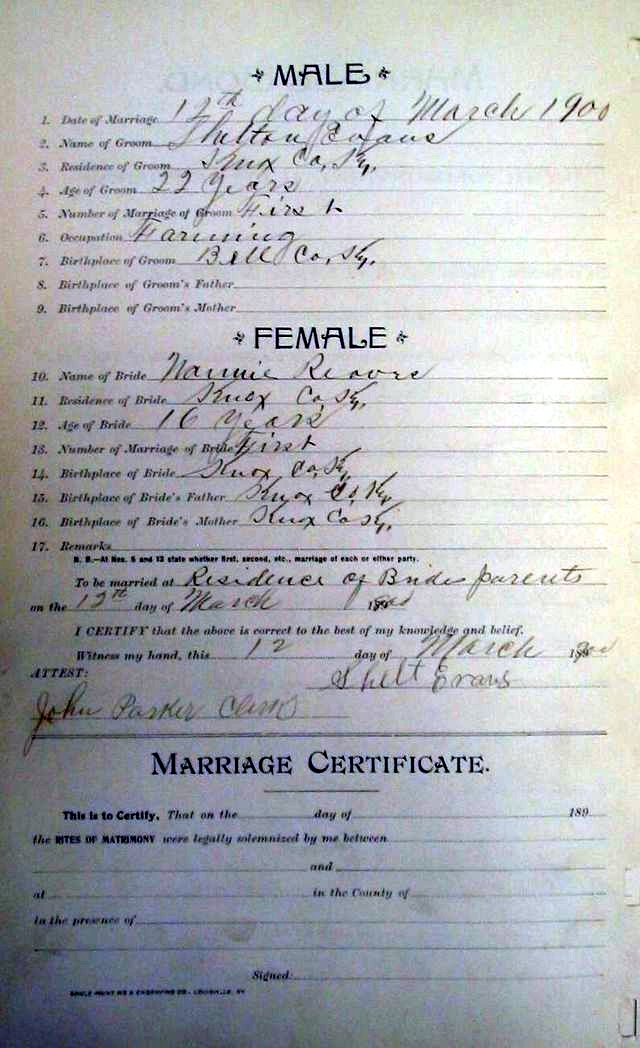 MALE
1. Date of Marriage 12th day of March 1900
2. Name of Groom Shelton Evans
3. Residence of Groom Knox Co, Ky,
4. Age of Groom 22 Years
5. Number of Marriage of Groom First
6. Occupation Farming
7. Birthplace of Groom Bell Co, Ky,
8. Birthplace of Groom's Father
9. Birthplace of Groom's Mother
FEMALE
10. Name of Bride Nannie
11. Residence of Bride Knox Co, Ky,
12. Age of Bride 16 Years
13. Number of Marriage of Bride First
14. Birthplace of Bride Knox Co, Ky
15. Birthplace of Bride's Father Knox Co, Ky
16. Birthplace of Bride's Mother Knox Co Ky.
17. Remarks
N. B.—At Nos. 5 and 13 state whether first, second, etc., marriage of each or either party.
To be married at Residence of Brides parents
on the 12th day of March 1900
I CERTIFY that the above is correct to the best of my knowledge and belief.
Witness my hand, this 12 day of March 1900
ATTEST:
Shelt Evans
John Parker
MARRIAGE CERTIFICATE.
This is to Certify, That on the day of 189
the RITES OF MATRIMONY were legally solemnized by me between
and
at in the County of
in the presence of
Signed: